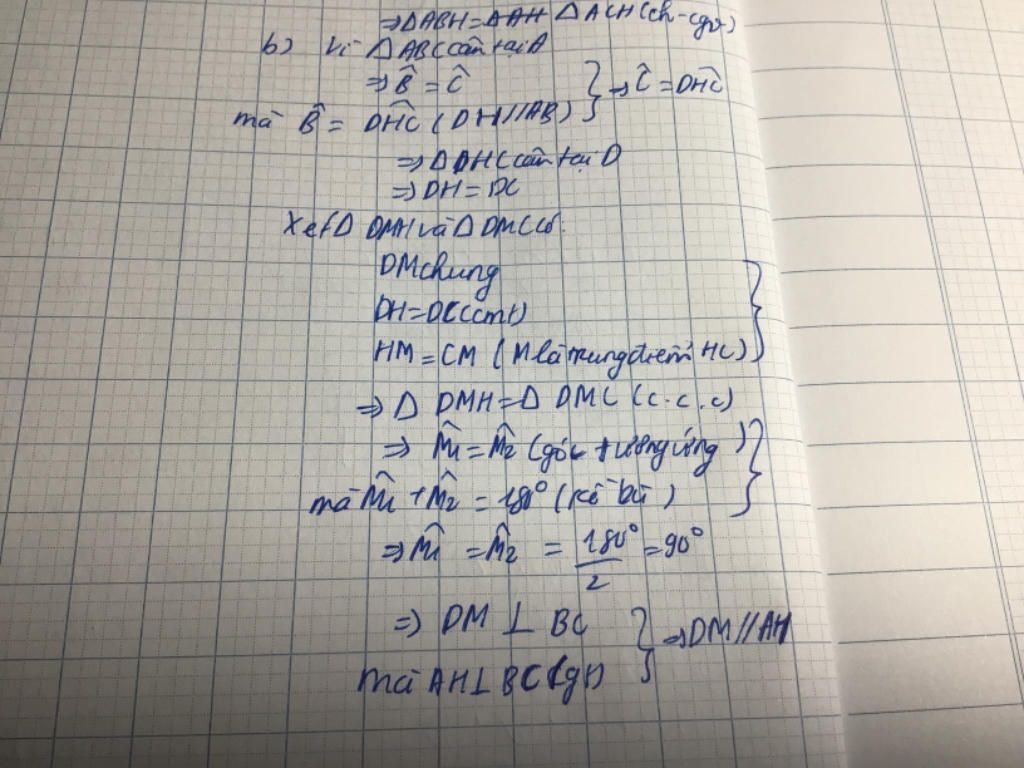 ⇒ΔABH=ΔAH ΔACH(ch-cgv)
b) Vì ΔABC cân tại A
⇒ B̂ = Ĉ
→ Ĉ = DHĈ
mà B̂ = DHĈ (DH//AB)
⇒ΔDHC cân tại D
⇒DH=DC
Xét Δ DMH và Δ DMC có:
DM chung
DH=DC(cmt)
HM=CM (M là trung điểm HC)
⇒ Δ DMH=Δ DMC (c.c.c)
⇒ M̂1=M̂2 (góc tương ứng)
mà M̂1+M̂2 = 180° (kề bù)
⇒M̂1 =M̂2 = 180°/2 =90°
⇒ DM ⊥ BC
⇒DM//AH
mà AH⊥BC(gt)